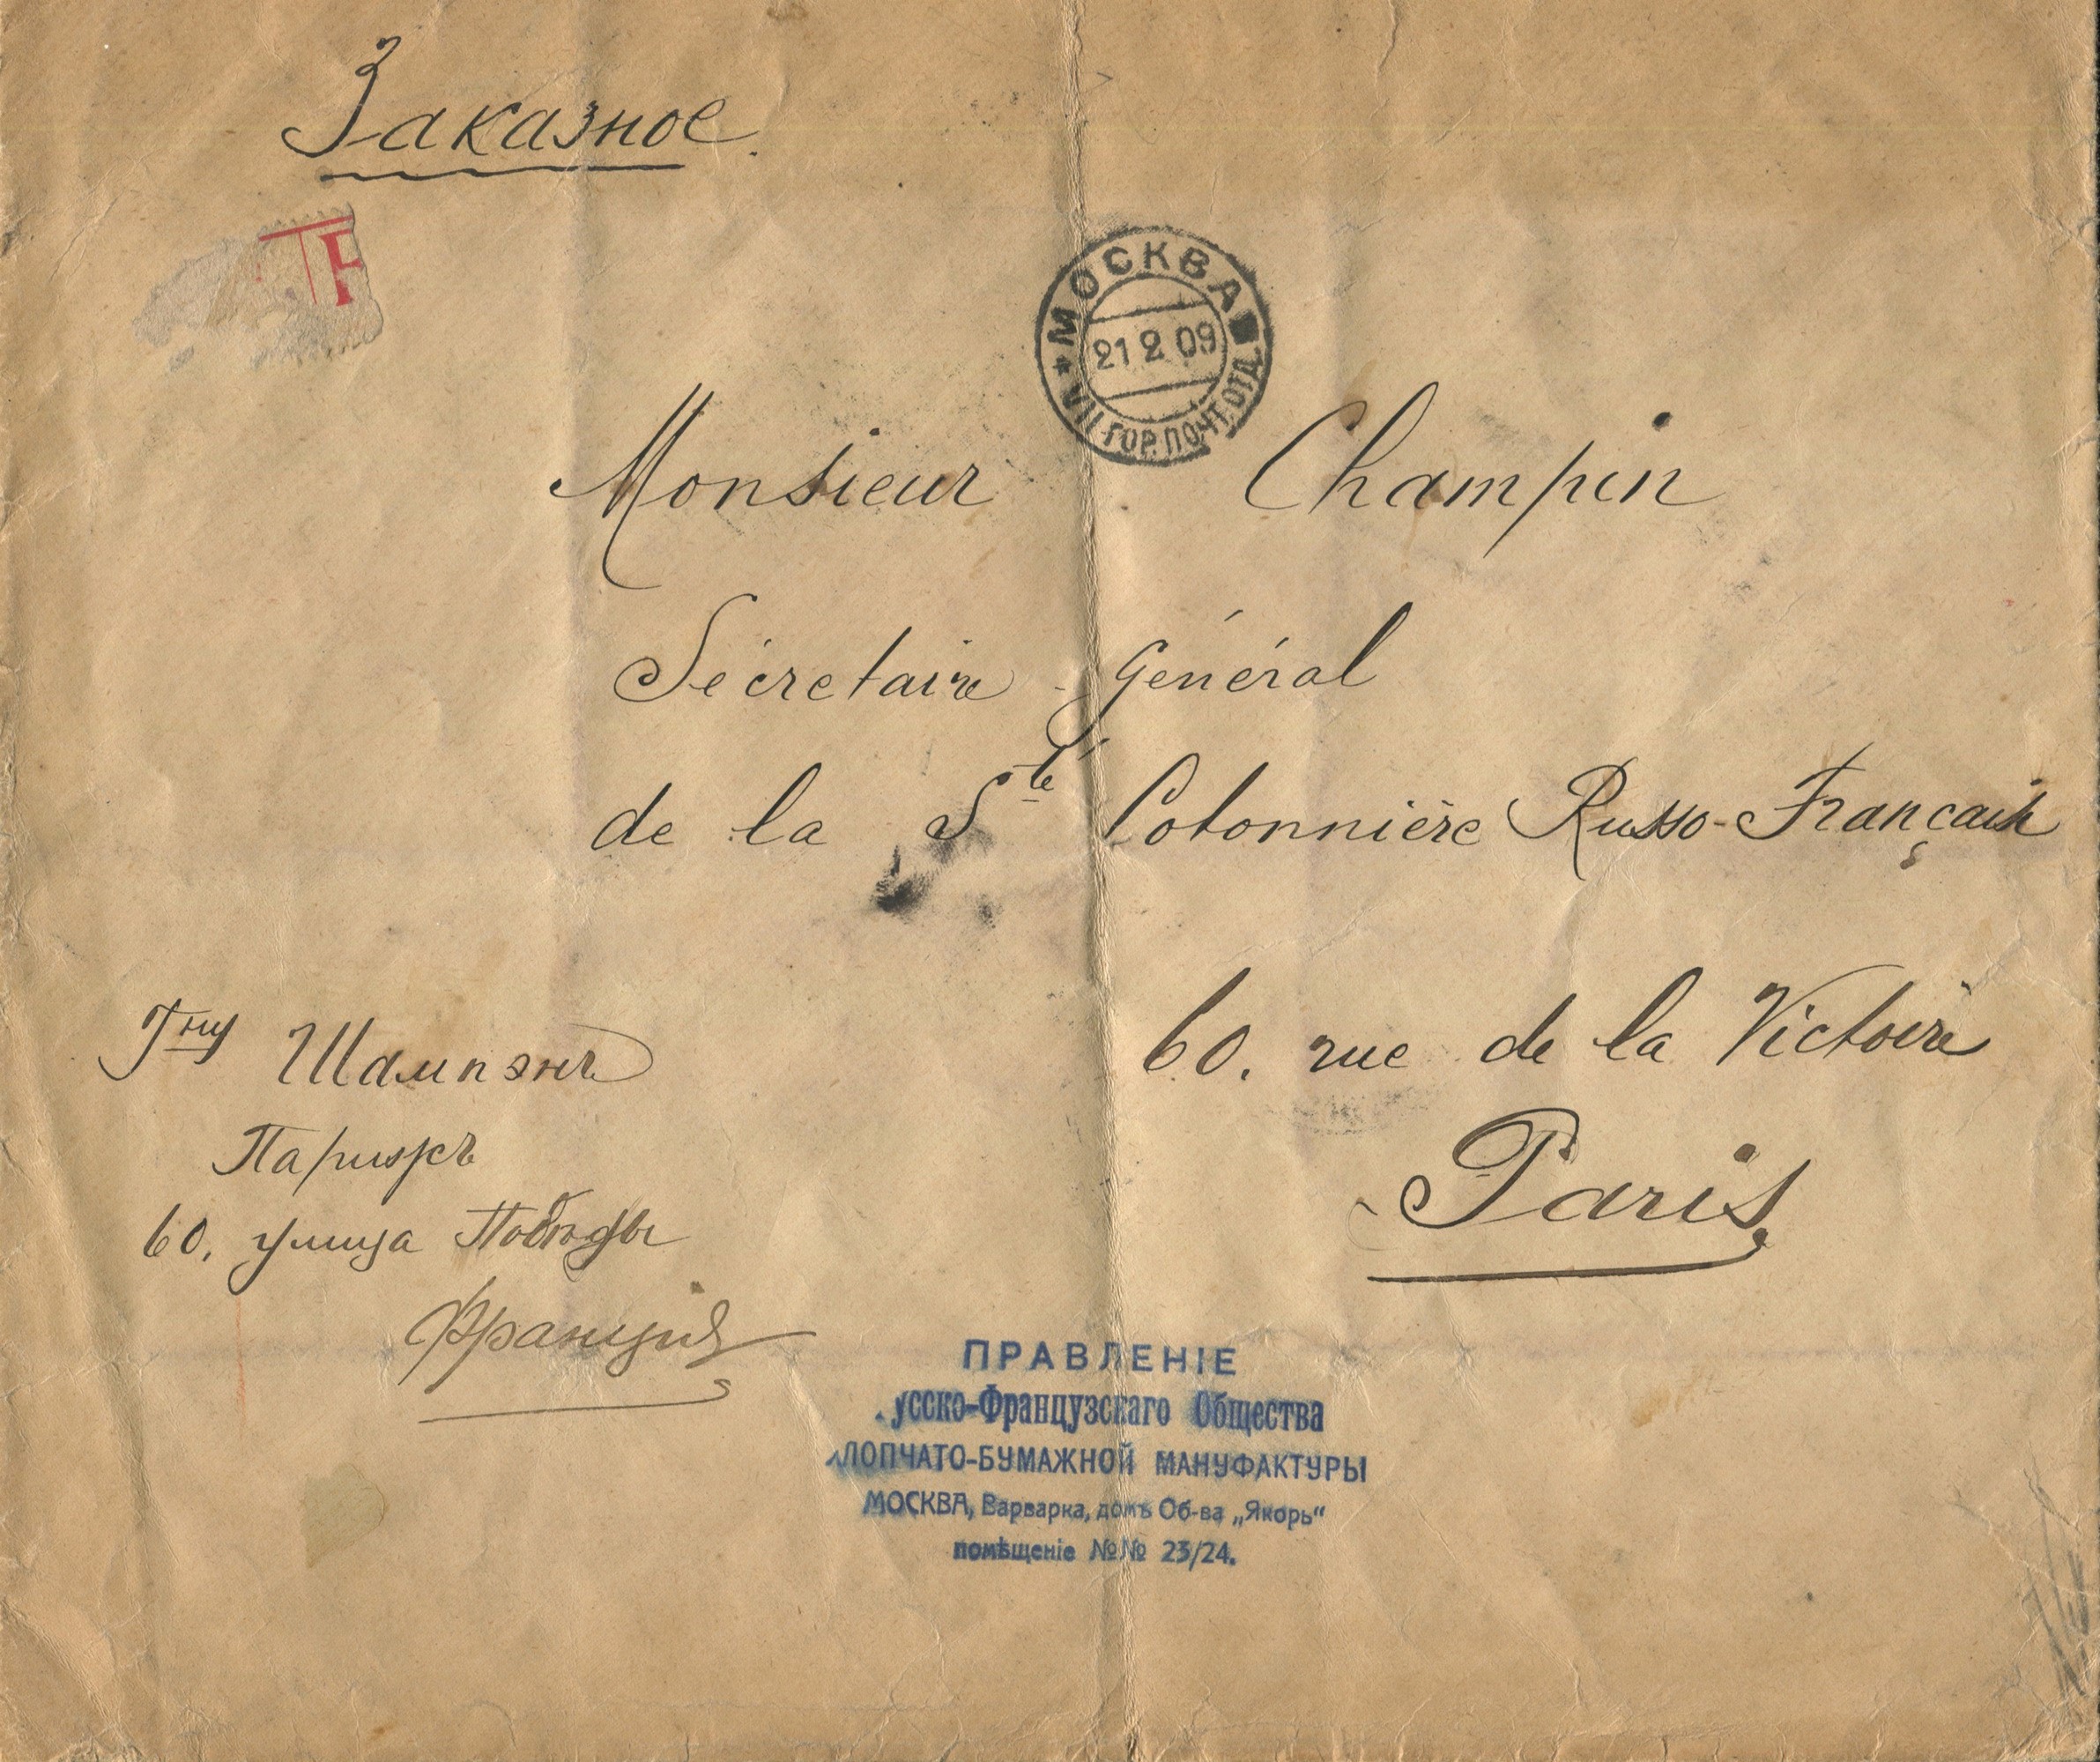 Заказное.
R
МОСКВА
21 2 09
VII ГОР.ПОЧТ.ОТД.
Monsieur Champin
Sécretaire Général
de la Sté Cotonnière Russo-Française
60. rue de la Victoire
Paris
Гну Шампэнъ
Парижъ
60, улица Побѣды
Франція
ПРАВЛЕНІЕ
усско-Французскаго Общества
ЛОПЧАТО-БУМАЖНОЙ МАНУФАКТУРЫ
МОСКВА, Варварка, домъ Об-ва „Якорь“
помѣщеніе №№ 23/24.